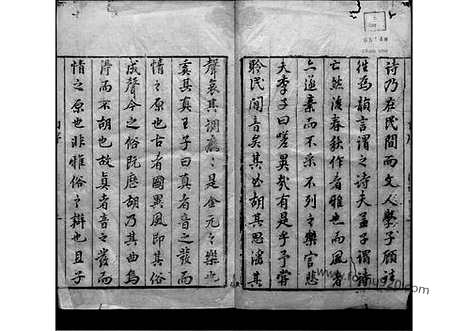 詩乃在民間而文人學子顧往
往為韻言謂之詩夫孟子謂詩
亡然後春秋作者雅也而風者
亦遂棄而不采不列之樂官悲
夫李子曰嗟異哉有是乎予嘗
聆民間音矣其曲胡其思淫其
聲哀其調靡〻是金元之樂也
奚其真王子曰真者音之發而
情之原也古者國異風即其俗
成聲今之俗既歷胡乃其曲烏
得而不胡也故真者音之發而
情之原也非雅俗之辯也且子